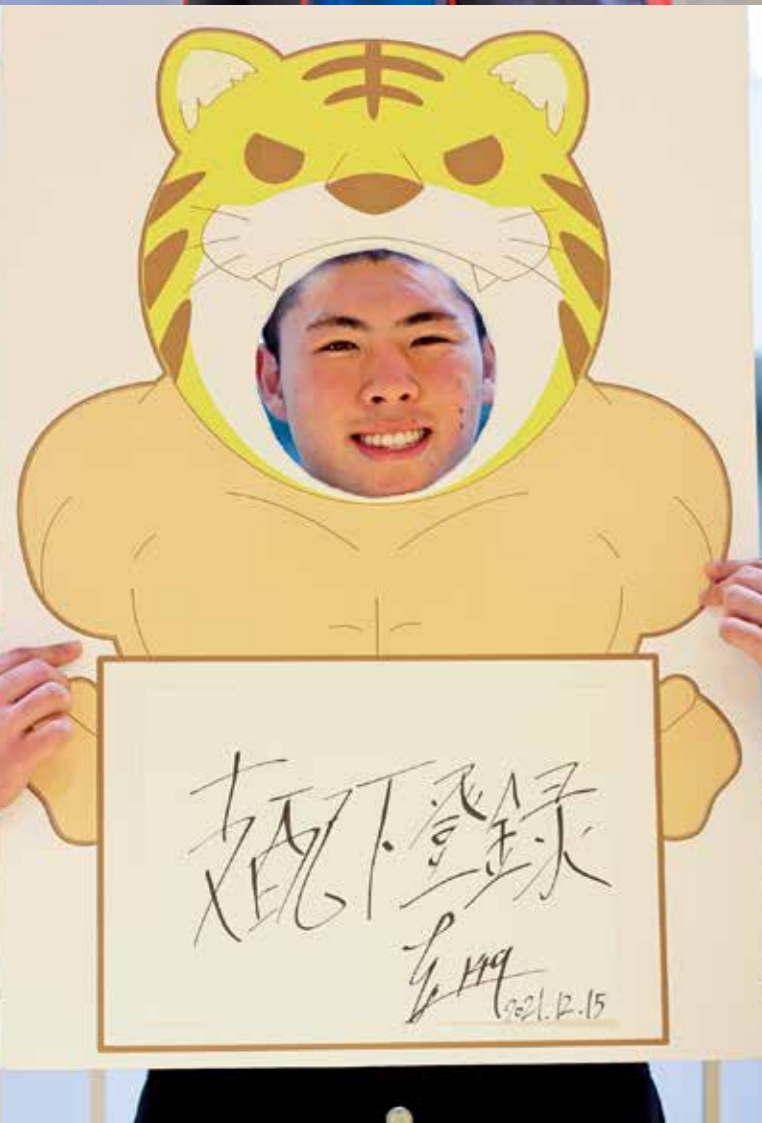 支配下登録
2021.12.15